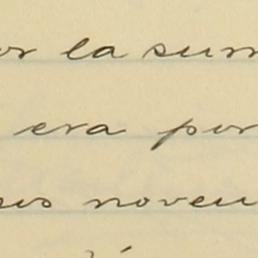 or la sum
era por
sos noven